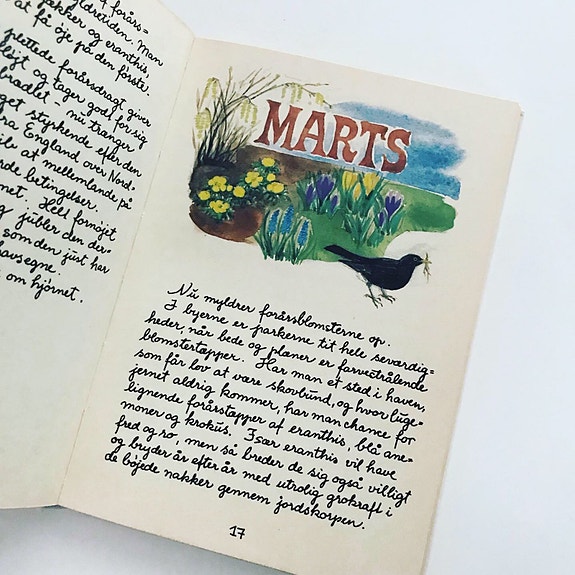 f forårs=
yldretiden. Man
akker og eranthis,
at få øje på den første,
plettede forårsdragt giver
løjt og tager godt for sig
brædlet. nu trænger
get styrkende efter den
ra England over Nord=
ils at mellemlande på
rde betingelser.
net. Helt fornøjet
g jubler den der=
som den just har
havsegne.
om hjørnet.
MARTS
Nu myldrer forårsblomsterne op.
I byerne er parkerne tit hele seværdig=
heder, når bede og plæner er farvestrålende
blomstertæpper. Har man et sted i haven,
som får lov at være skovbund, og hvor luge=
jernet aldrig kommer, har man chance for
lignende forårstæpper af eranthis, blå ane=
moner og krokus. Især eranthis vil have
fred og ro, men så breder de sig også villigt
og bryder år efter år med utrolig grokraft i
de bøjede nakker gennem jordskorpen.
17